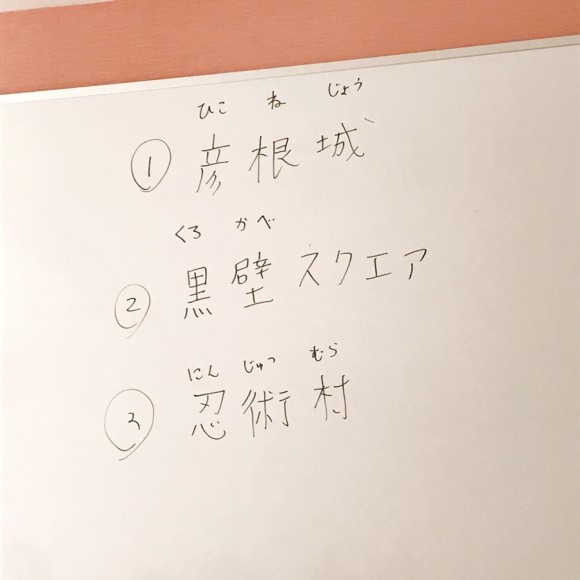 ひこ ね じょう
① 彦根城
くろ かべ
② 黒壁スクエア
にん じゅつ むら
③ 忍術村